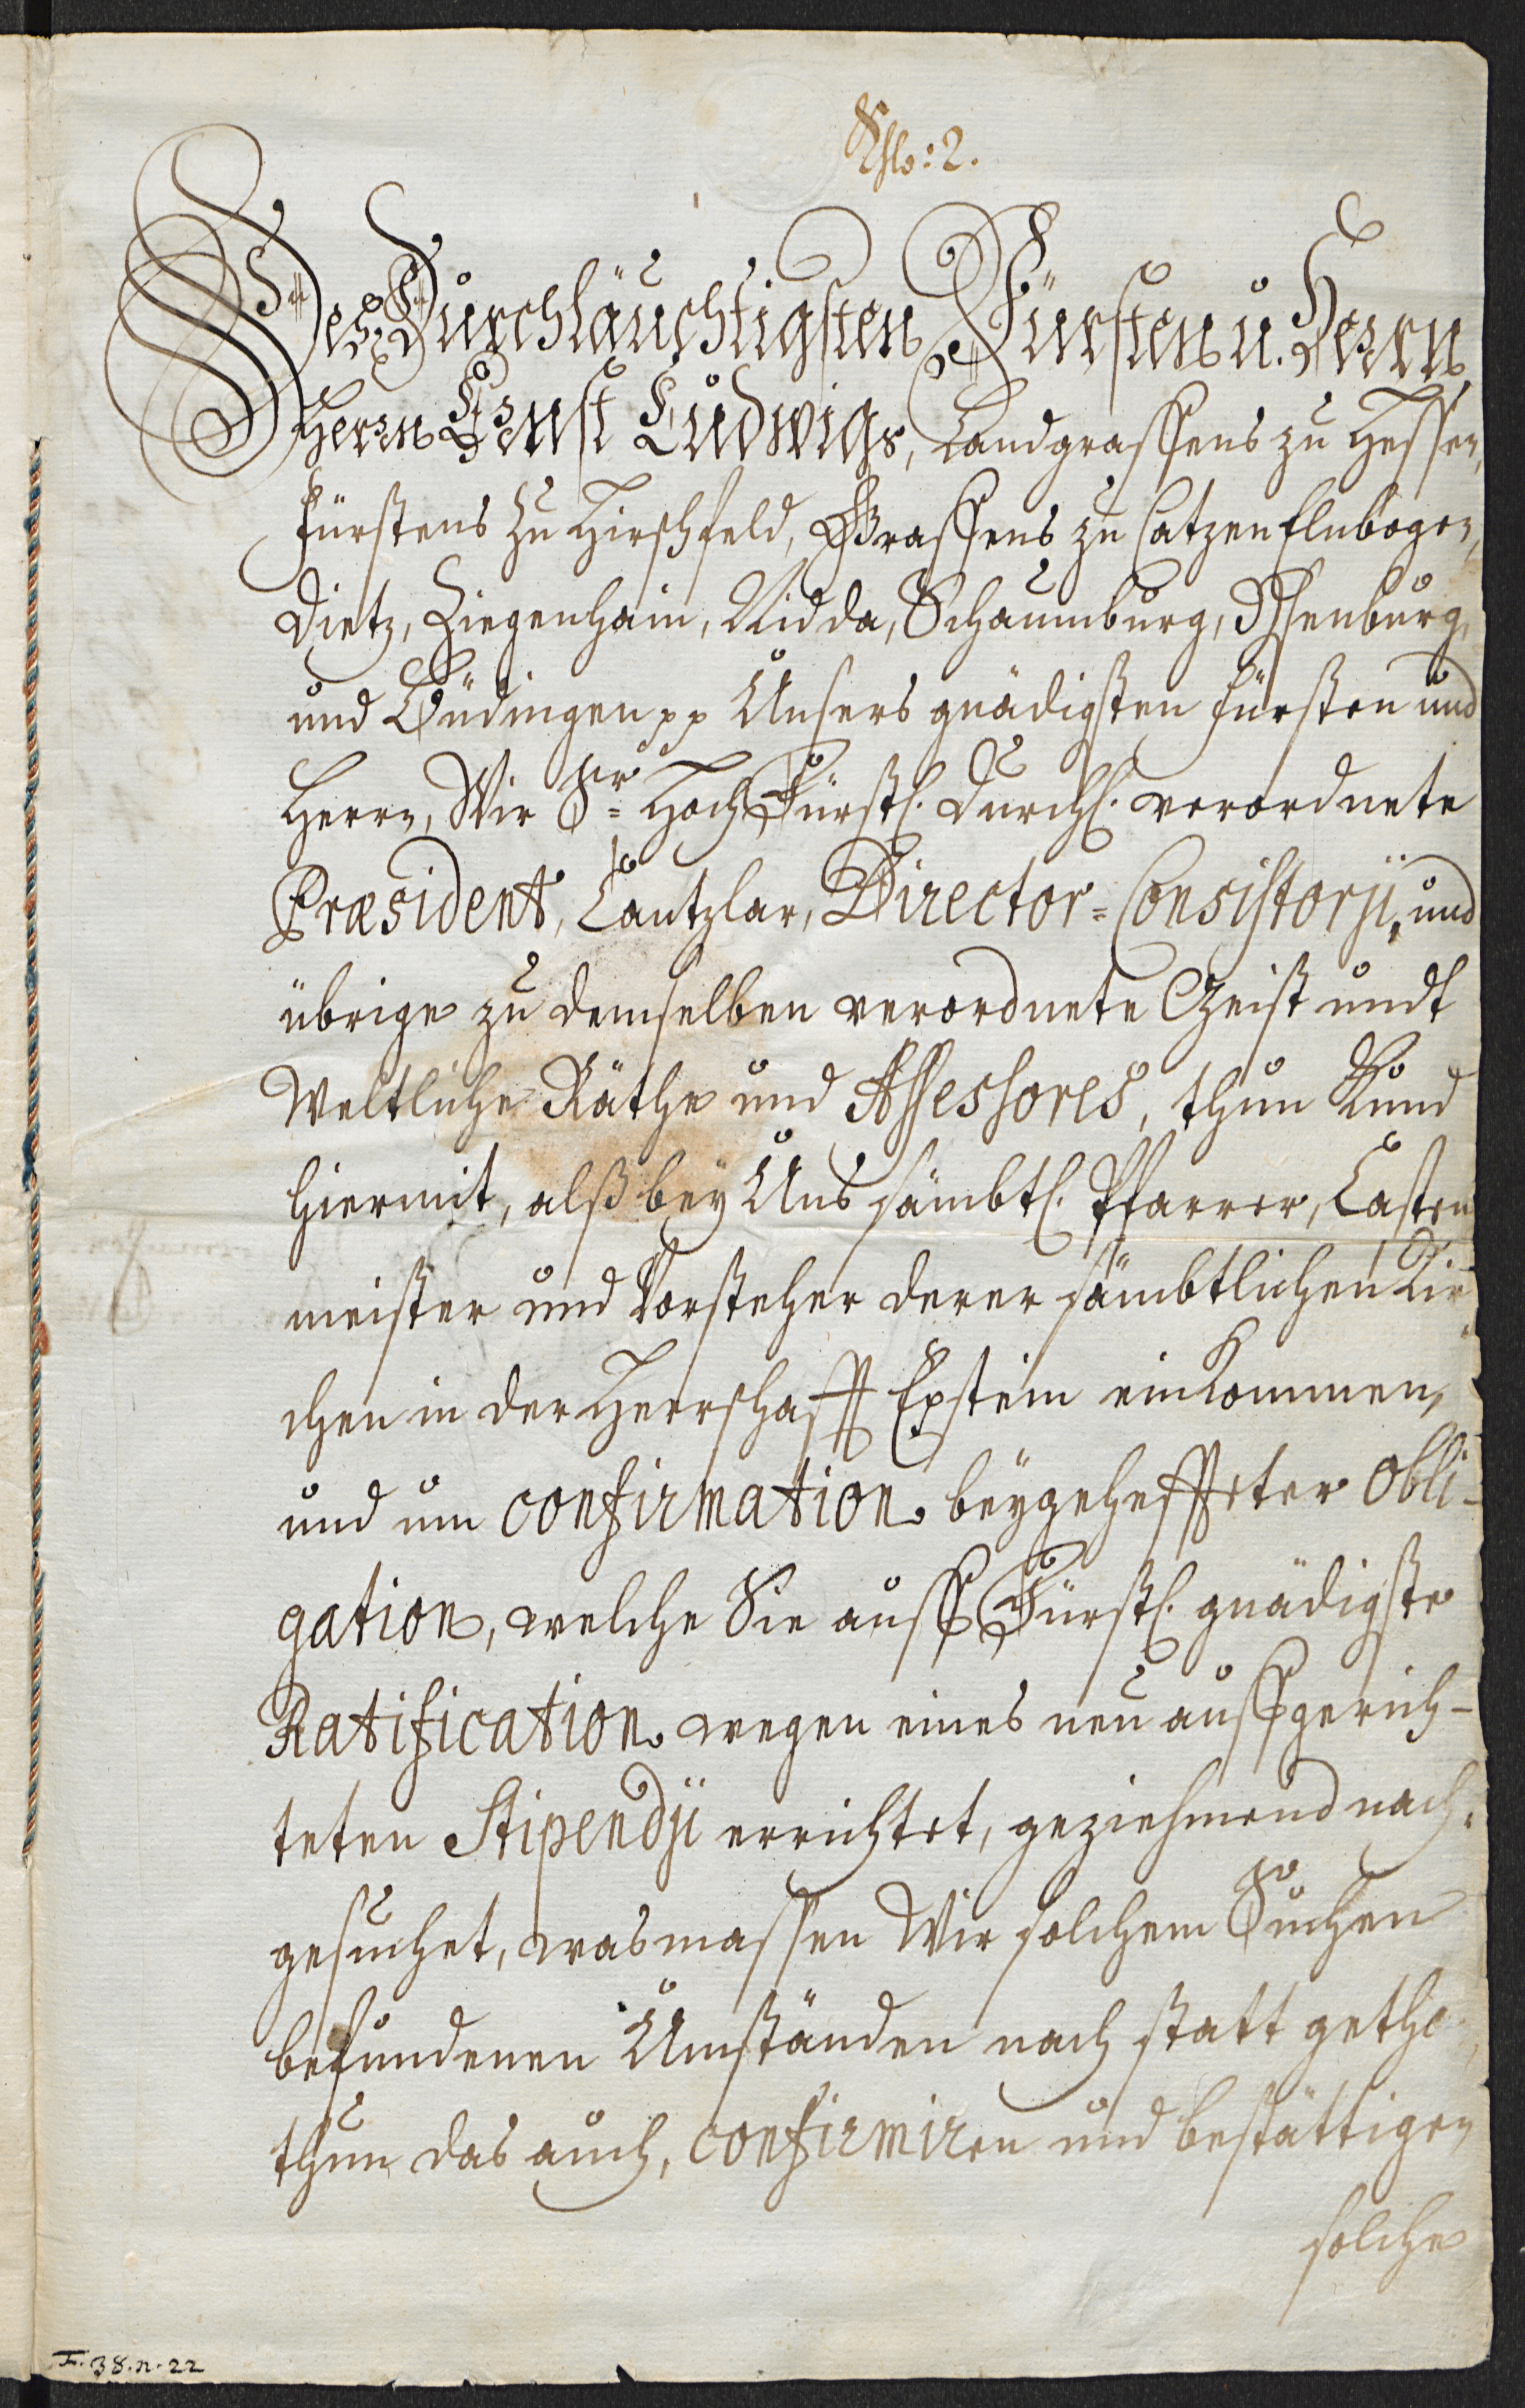 Des Durchläuchtigsten Fürsten u. Herrn,
Herrn Ernst Ludwigs, Landgraffens zu Hessen,
Fürstens zu Hirschfeld, Graffens zu Catzenelnbogen,
Dietz, Ziegenhain, Nidda, Schaumburg, Ysenburg,
und Büdingen pp Unsers gnädigsten Fürsten und
Herrn, Wir Sr= Hoch Fürstl. Durchl. verordnete
Præsident, Cantzlar, Director=Consistorij, und
übrige zu demselben verordnete Geist undt
Weltliche Räthe und Assessores, thun Kund
hiermit, alß bey Uns sämbtl. Pfarrer, Casten
meister und Vorsteher derer sämbtlichen Kir
chen in der Herrschafft Epstein einkommen,
und um confirmation beygehefffteter obli-
gation, welche Sie auff Fürstl. gnädigste
Ratification wegen eines neu auffgerich-
teten Stipendij errichtet, geziehmend nach-
gesuchet, wasmassen Wir solchem Suchen
befundenen Umständen nach statt getha
thun das auch, confirmiren und bestättigen
solche
I. 38. n. 22